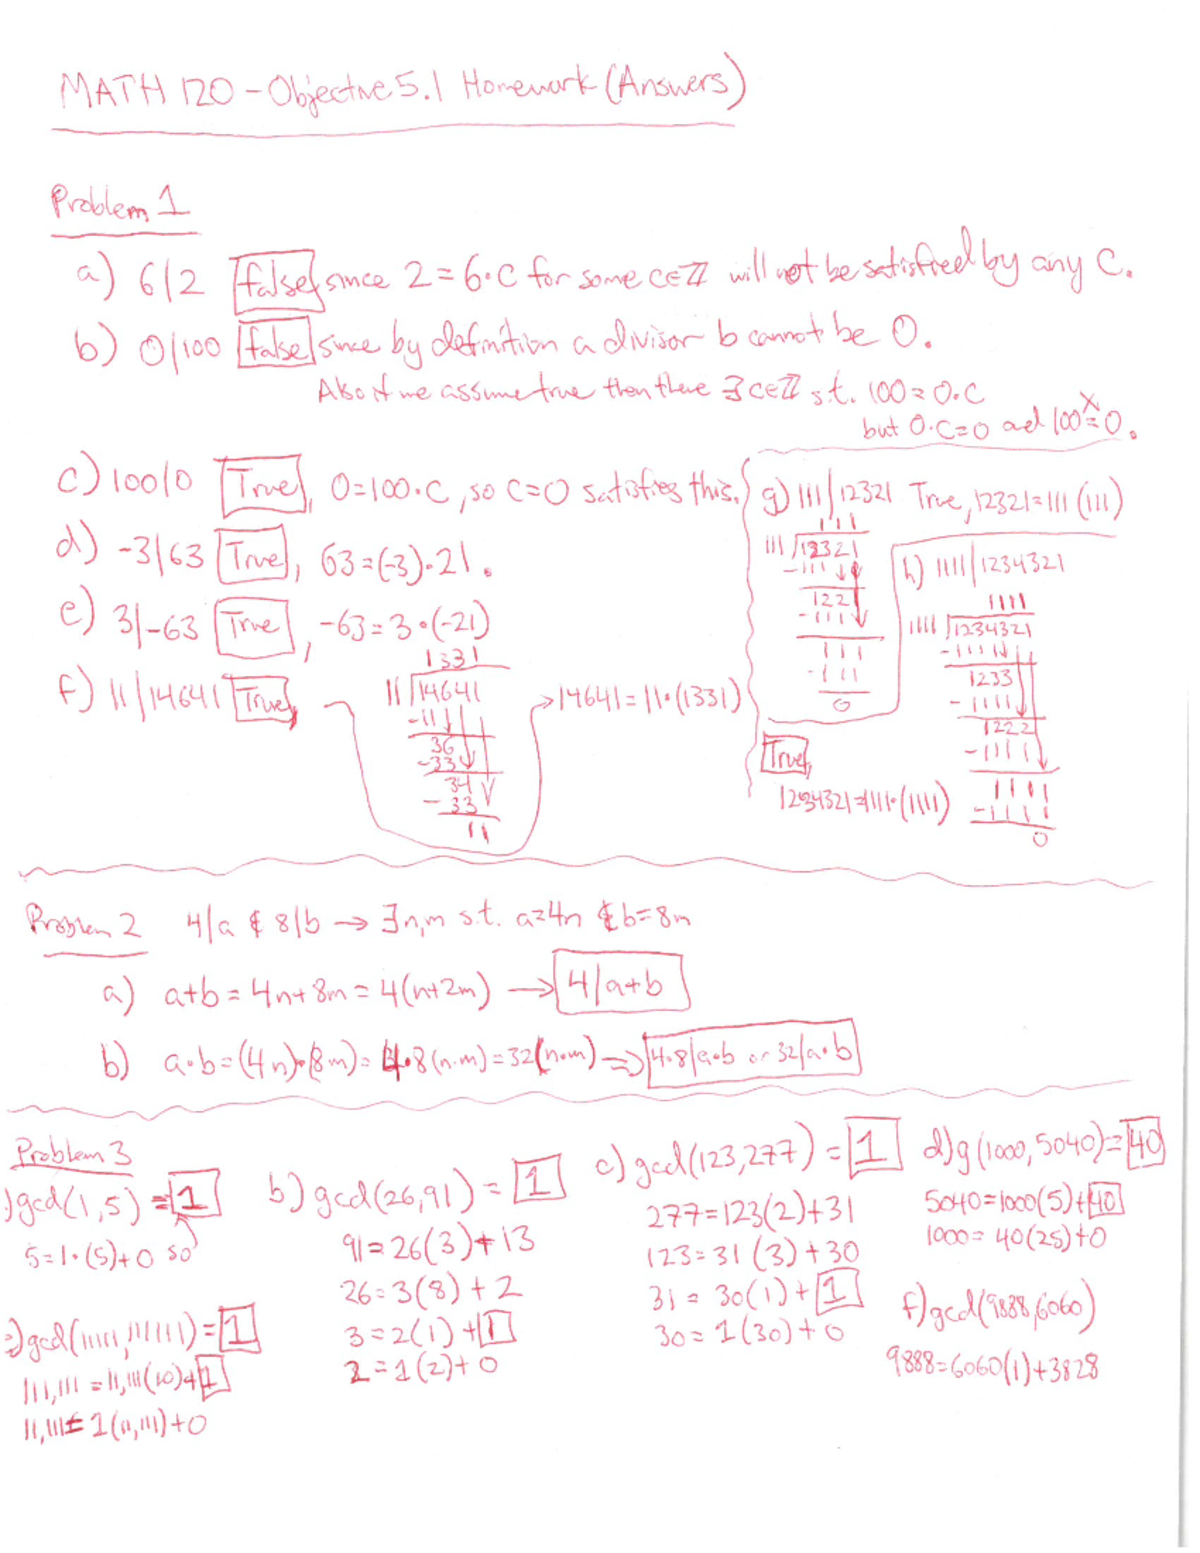 MATH 120 - Objective 5.1 Homework (Answers)
Problem 1
a) 6|2 False, since 2 = 6·C for some C∈ℤ will not be satisfied by any C.
b) 0|100 False since by definition a divisor b cannot be 0.
Also if we assume true then there ∃ C∈ℤ s.t. 100 = 0·C
but 0·C=0 and 100 = 0.
c) 100|0 True, 0=100·C, so C=0 satisfies this.
d) -3|63 True, 63=(-3)·21.
e) 3|-63 True, -63=3·(-21)
f) 11|14641 True,
1331
11 14641
-11
36
-33
34
-33
11
14641=11·(1331)
g) 111|12321 True, 12321=111(111)
111
111 12321
-111
122
-111
111
-111
0
h) 1111|1234321
1111
1111 1234321
-1111
1233
-1111
1222
-1111
1111
-1111
0
True,
1234321=1111·(1111)
Problem 2 4|a & 8|b → ∃n,m s.t. a=4n & b=8m
a) a+b = 4n+8m = 4(n+2m) → 4|a+b
b) a·b=(4n)·(8m)= 4·8(n·m)=32(n·m) ⇒ 4·8|a·b or 32|a·b
Problem 3
)gcd(1,5) = 1
5=1·(5)+0 so
b) gcd(26,91) = 1
91=26(3)+13
26=3(8)+2
3=2(1)+1
2=1(2)+0
c) gcd(123,277) = 1
277=123(2)+31
123=31(3)+30
31=30(1)+1
30=1(30)+0
d) g(1000,5040)=40
5040=1000(5)+40
1000=40(25)+0
)gcd(11111,111111)=1
111,111=11,111(10)+1
11,111=1(11,111)+0
f) gcd(9888,6060)
9888=6060(1)+3828